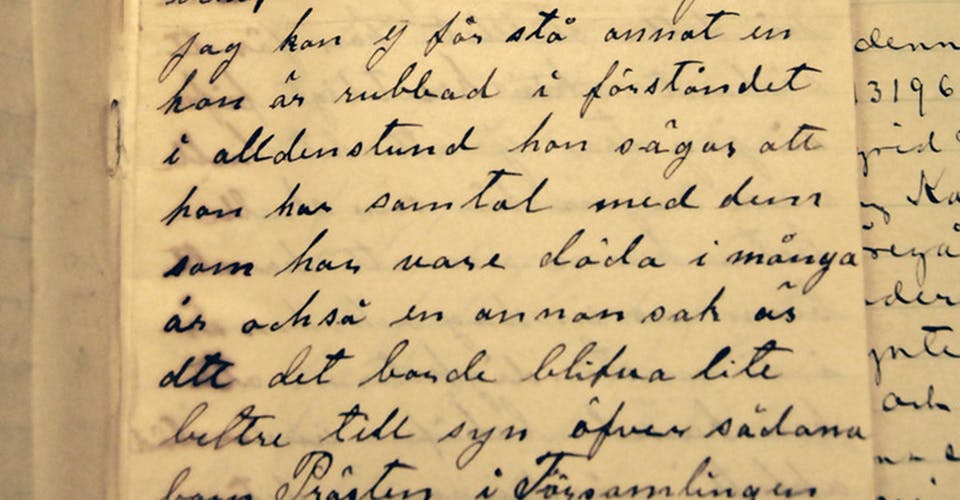 jag kan ej för stå annat en
han är rubbad i förståndet
i alldenstund han säger att
han har samtal med dem
som har vare döda i många
år också en annan sak är
att det borde blifva lite
bettre till syn öfver sådana
barn Prästen i Församlingen
denn
13196
och